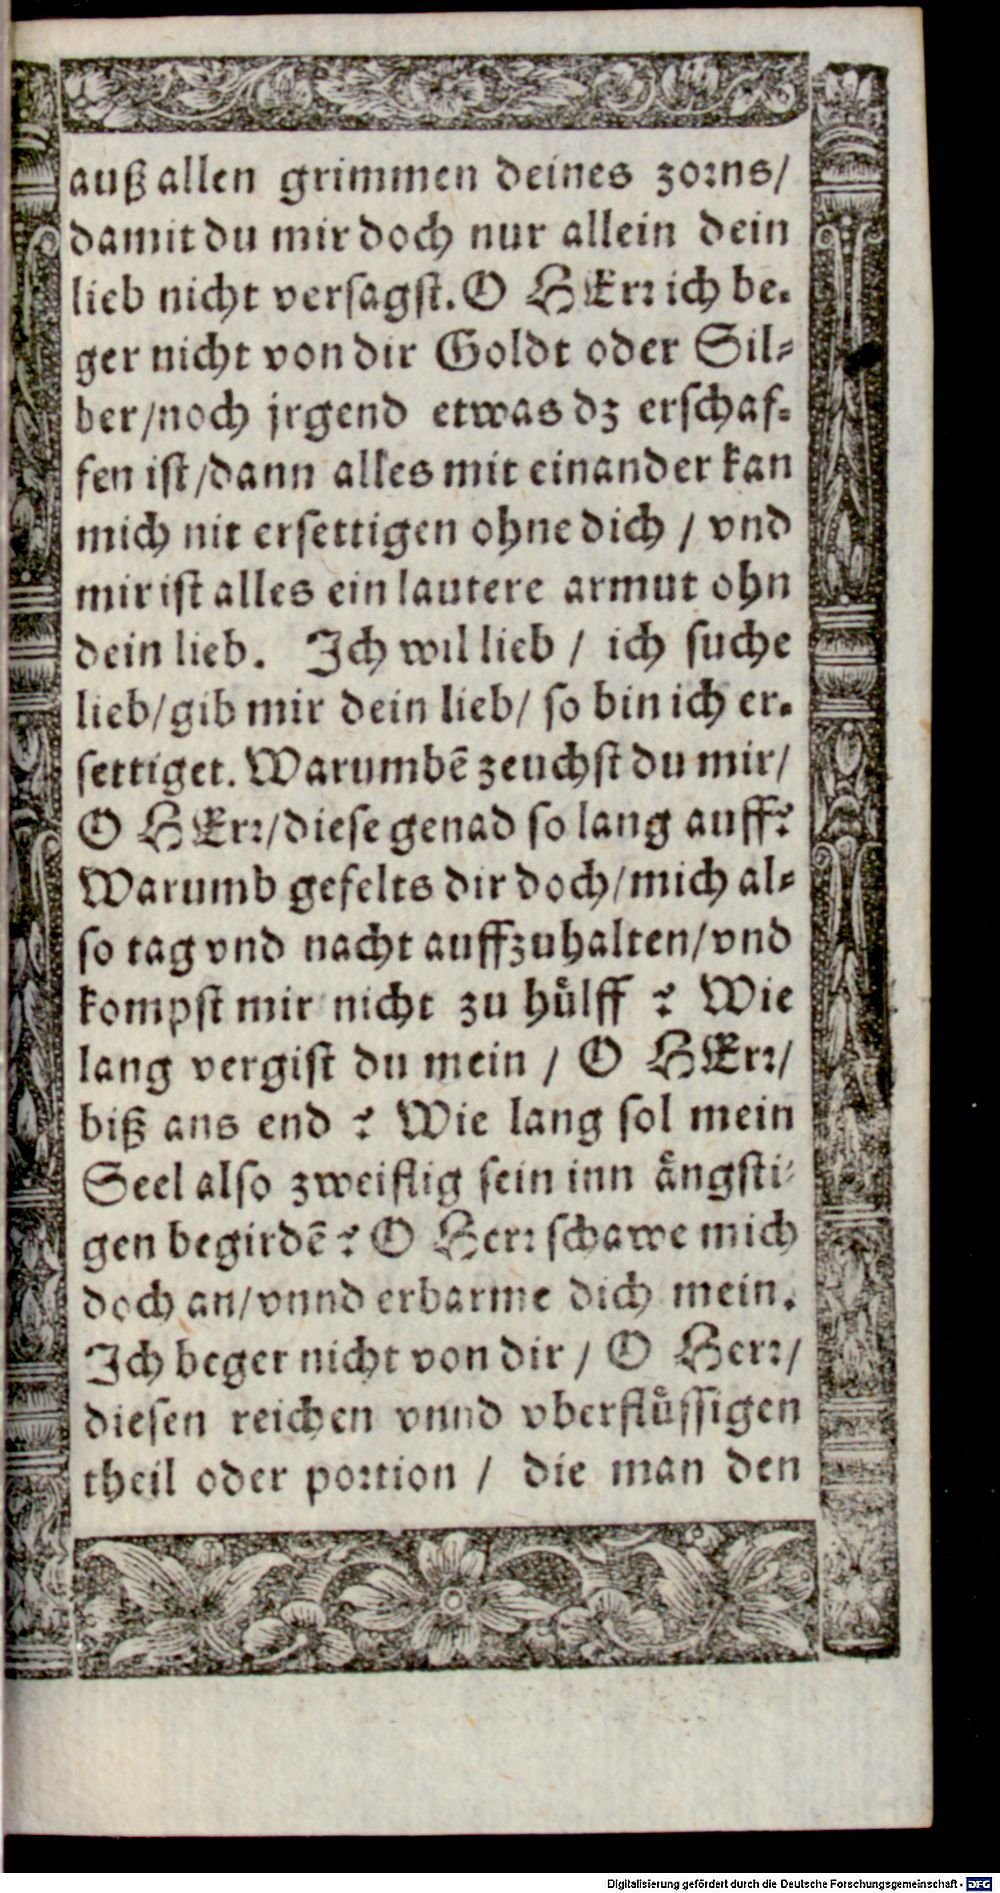 auß allen grimmen deines zorns/
damit du mir doch nur allein dein
lieb nicht versagst. O HErr ich be-
ger nicht von dir Goldt oder Sil-
ber/noch jrgend etwas dz erschaf-
fen ist/dann alles mit einander kan
mich nit ersettigen ohne dich / vnd
mir ist alles ein lautere armut ohn
dein lieb. Ich wil lieb / ich suche
lieb/gib mir dein lieb/ so bin ich er-
settiget. Warumbē zeuchst du mir/
O HErr/diese genad so lang auff?
Warumb gefelts dir doch/mich al-
so tag vnd nacht auffzuhalten/vnd
kompst mir nicht zu hülff ? Wie
lang vergist du mein / O HErr/
biß ans end ? Wie lang sol mein
Seel also zweiflig sein inn ängsti-
gen begirdē ? O Herr schawe mich
doch an/vnnd erbarme dich mein.
Ich beger nicht von dir / O Herr/
diesen reichen vnnd vberflüssigen
theil oder portion / die man den
Digitalisierung gefördert durch die Deutsche Forschungsgemeinschaft - DFG